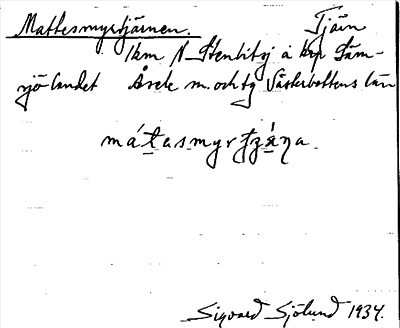 Mattesmyrtjärnen. Tjärn
1km N Stenbitsj å krp Täm-
sjö landet Åsele m. och tg Västerbottens län
má t a s m y r tz á n a
Sigvard Sjölund 1934.